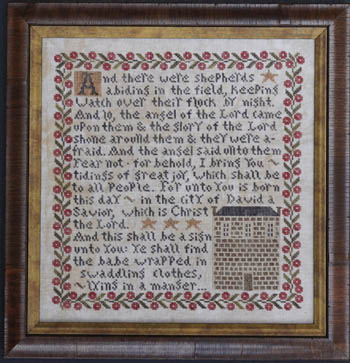 And there were shepherds
abiding in the field, keeping
Watch over their flock by night.
And lo, the angel of the Lord came
upon them & the glory of the Lord
shone around them & they were a-
fraid. And the angel said unto them
Fear not - for behold, I bring You ~
tidings of great joy, which shall be
to all People. For unto You is born
this day ~ in the city of David a
Savior, which is Christ
the Lord.
And this shall be a sign
unto You: Ye shall find
the babe wrapped in
swaddling clothes,
~ lying in a manger...